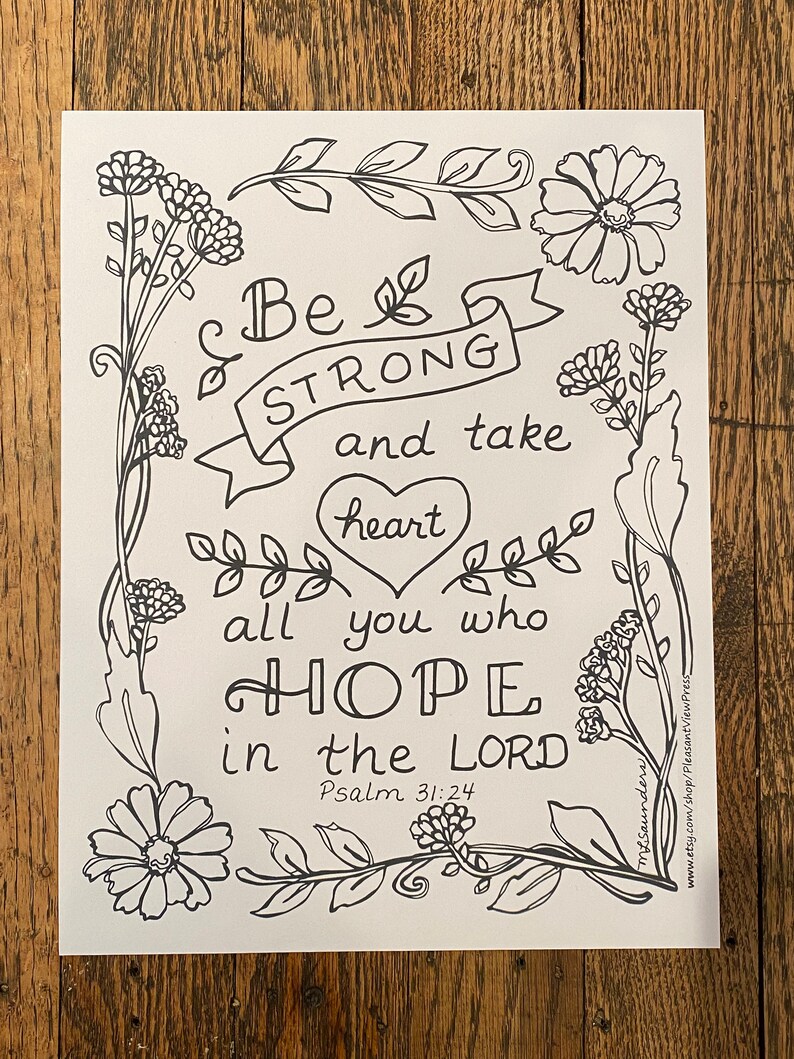 Be
STRONG
and take
heart
all you who
HOPE
in the LORD
Psalm 31:24
MLSaunders
www.etsy.com/shop/PleasantViewPress